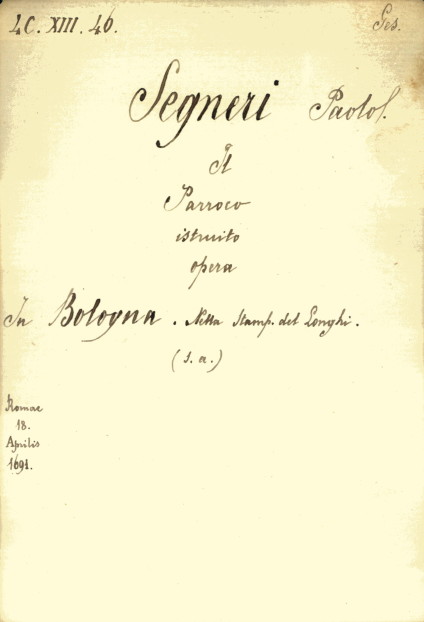 4C. XIII. 46. Ges.
Segneri Paolo.
Il
Parroco
istruito
opera
In Bologna. Nella Stamp. del Longhi.
(s. a.)
Romae
18.
Aprilis
1691.